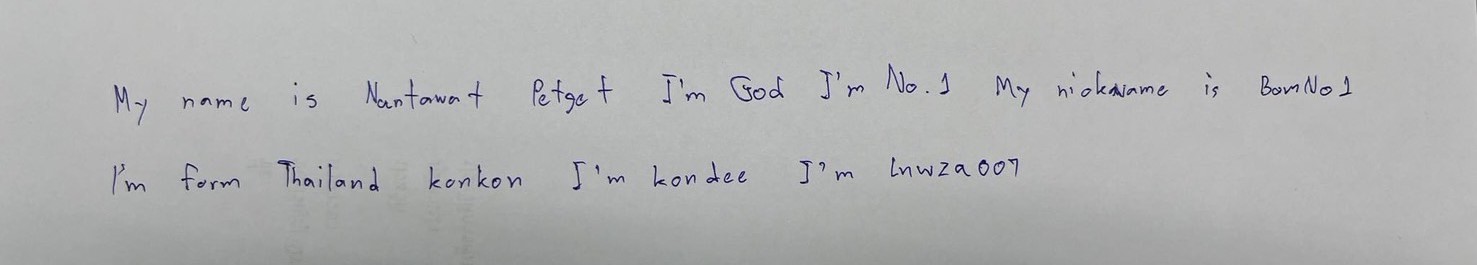 My name is Nantawat Petget I'm God I'm No.1 My nickname is BomNo1
I'm form Thailand konkon I'm kondee I'm lnwza007